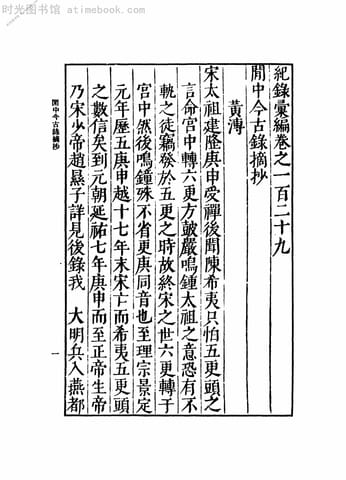 时光图书馆 - atimebook.com
紀錄彙編卷之一百二十九
閒中今古錄摘抄
黃溥
宋太祖建隆庚申受禪後聞陳希夷只怕五更頭之
言命宮中轉六更方皷嚴鳴鐘太祖之意恐有不
軌之徒竊發於五更之時故終宋之世六更轉于
宮中然後鳴鐘殊不省更庚同音也至理宗景定
元年歷五庚申越十七年末宋亡而希夷五更頭
之數信矣到元朝延祐七年庚申而至正帝生帝
乃宋少帝趙㬎子詳見後錄我 大明兵入燕都
閒中今古錄摘抄
一